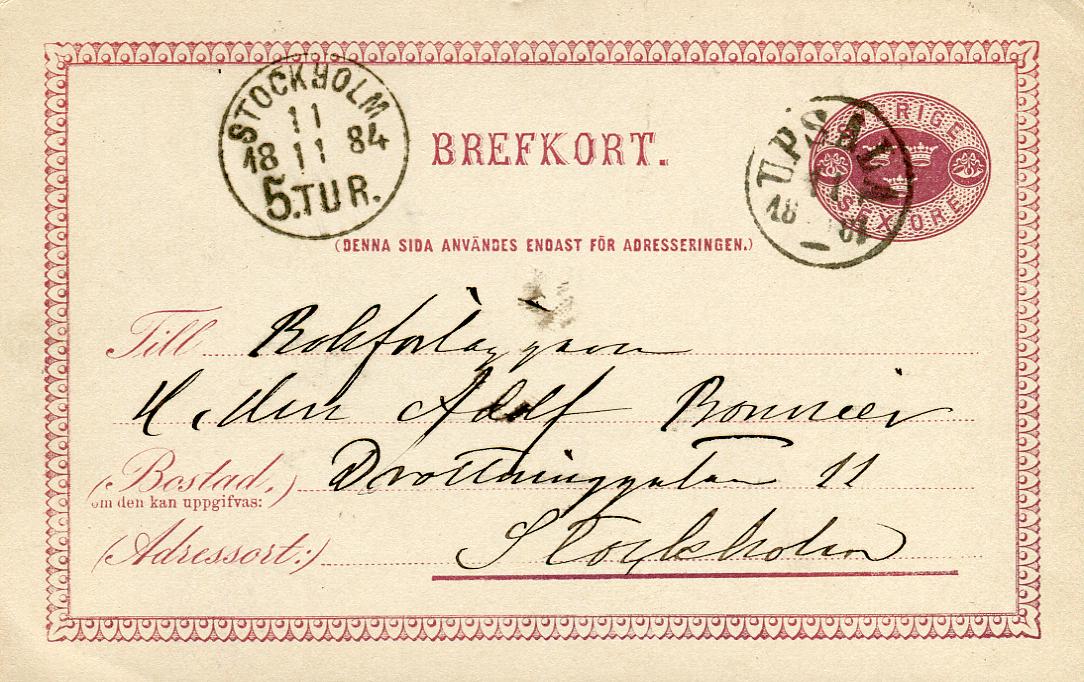 STOCKHOLM
11
18 11 84
5.TUR.
BREFKORT.
UPSALA
11
18 84
SVERIGE
SEX ÖRE
(DENNA SIDA ANVÄNDES ENDAST FÖR ADRESSERINGEN.)
Till Bokförläggaren
Herren Adolf Bonnier
(Bostad,) Drottninggatan 11
om den kan uppgifvas:
(Adressort:) Stockholm